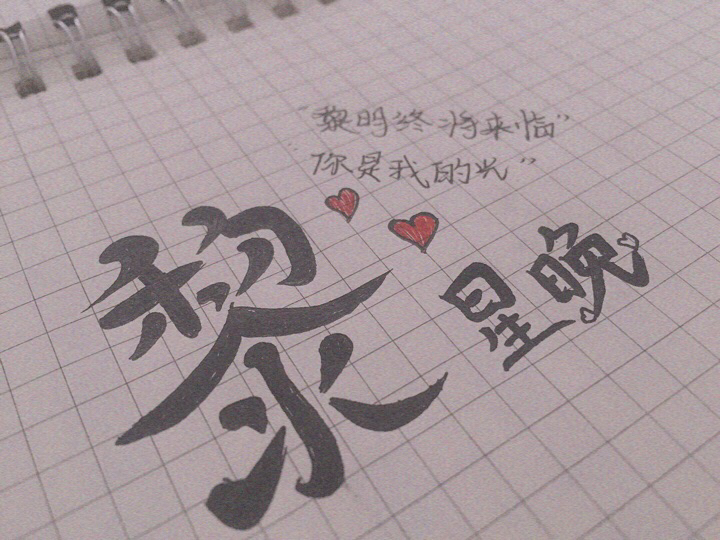 "黎明终将来临"
"你是我的光"
黎
星晚